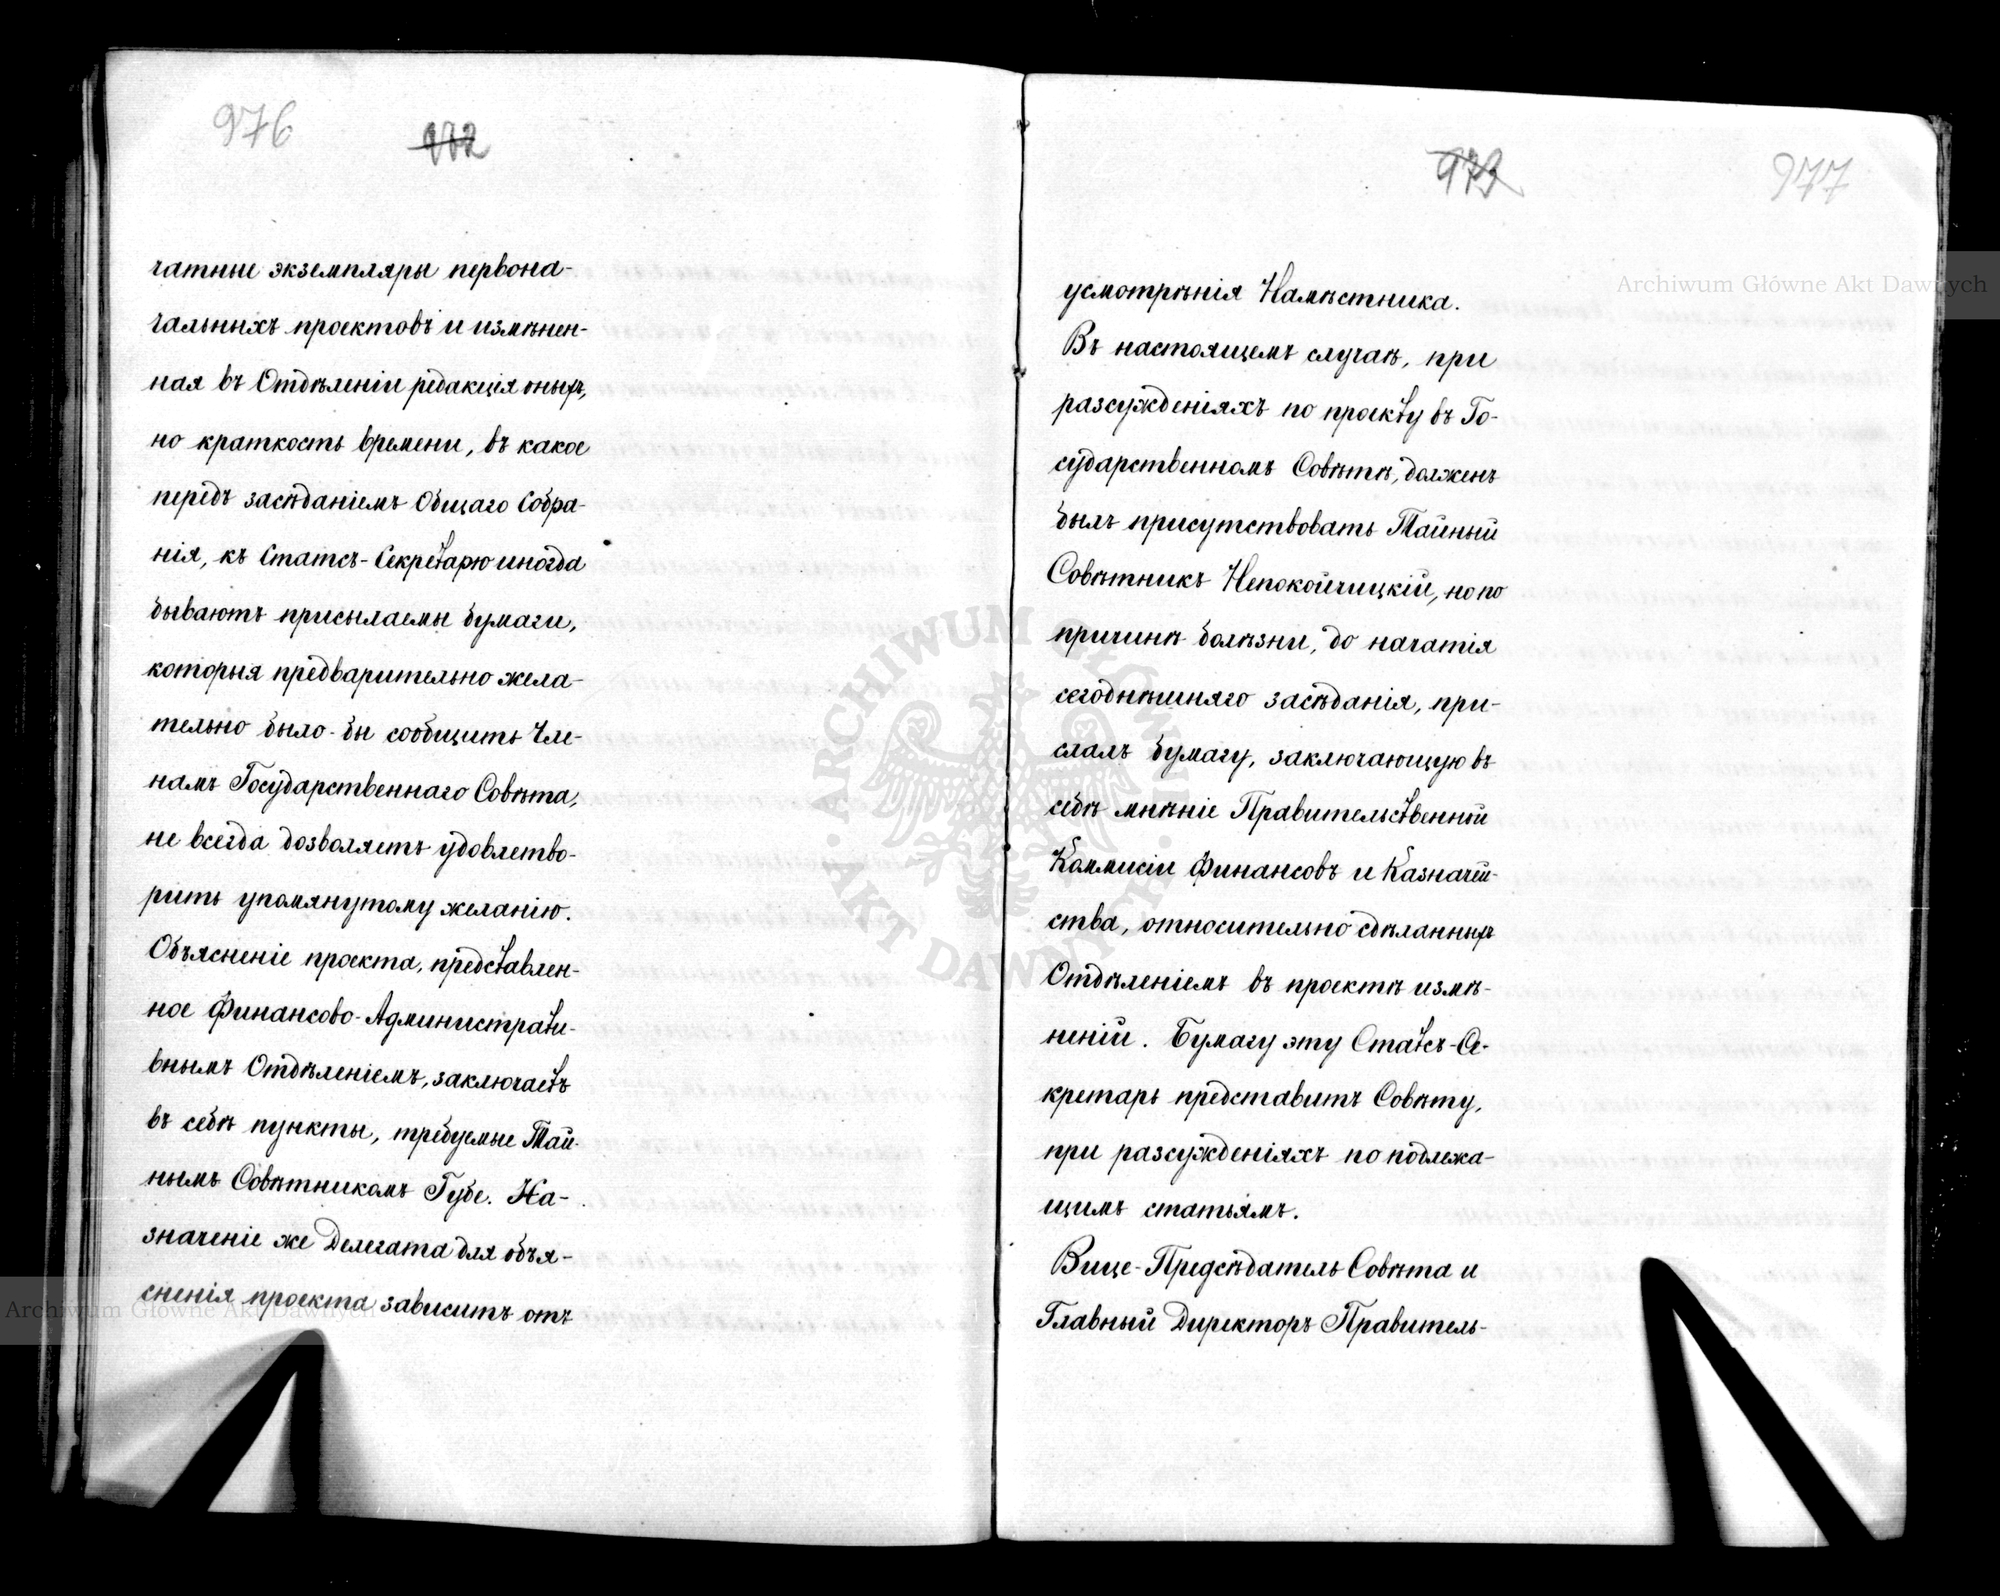 976
972
чатные экземпляры первона-
чальныхъ проектовъ и измѣнен-
ная въ Отдѣленіи редакція оныхъ,
но краткость времени, въ какое
передъ засѣданіемъ Общаго Собра-
нія, къ Статсъ-Секретарю иногда
бываютъ присылаемы бумаги,
которыя предварительно жела-
тельно было-бы сообщить Чле-
намъ Государственнаго Совѣта,
не всегда дозволяетъ удовлетво-
рить упомянутому желанію.
Объясненіе проекта, представлен-
ное Финансово-Администрати-
внымъ Отдѣленіемъ, заключаетъ
въ себѣ пункты, требуемые Тай-
нымъ Совѣтникомъ Губе. На-
значеніе же Делегата для объя-
сненія проекта зависитъ отъ
973
977
усмотрѣнія Намѣстника.
Въ настоящемъ случаѣ, при
разсужденіяхъ по проекту въ Го-
сударственномъ Совѣтѣ, долженъ
былъ присутствовать Тайный
Совѣтникъ Непокойчицкій, но по
причинѣ болѣзни, до начатія
сегоднѣшняго засѣданія, при-
слалъ бумагу, заключающую въ
себѣ мнѣніе Правительственной
Коммисіи Финансовъ и Казначей-
ства, относительно сдѣланныхъ
Отдѣленіемъ въ проектѣ измѣ-
неній. Бумагу эту Статсъ-Се-
кретарь представитъ Совѣту,
при разсужденіяхъ по подлежа-
щимъ статьямъ.
Вице-Предсѣдатель Совѣта и
Главный Директоръ Правитель-
Archiwum Główne Akt Dawnych
Archiwum Główne Akt Dawnych
ARCHIWUM GŁÓWNE
AKT DAWNYCH